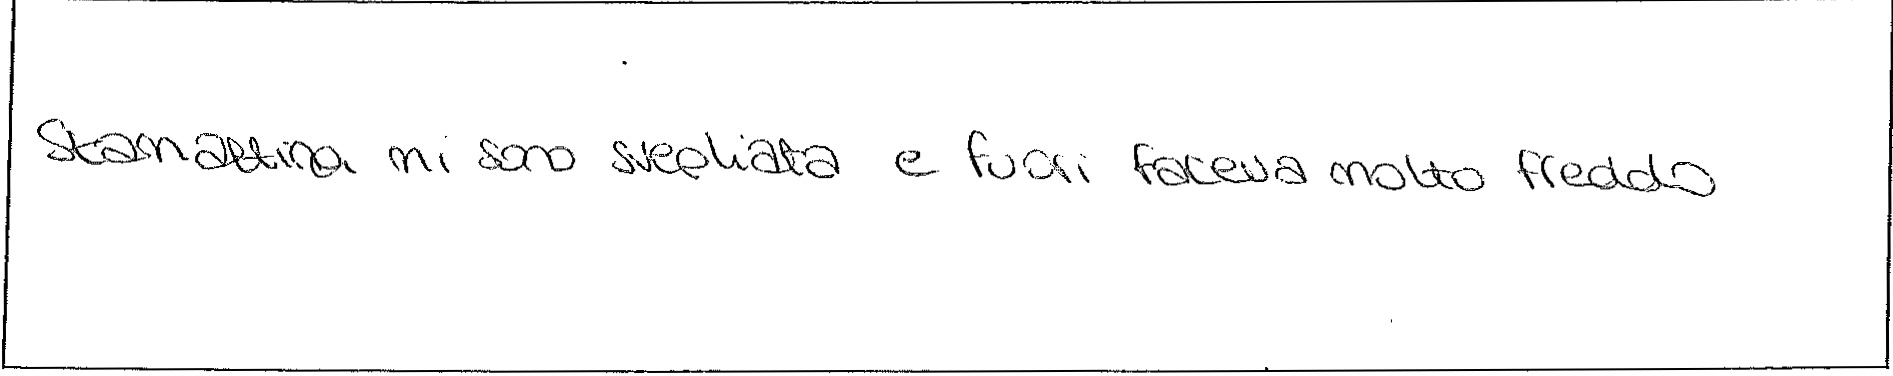 Stamattina mi sono svegliata e fuori faceva molto freddo